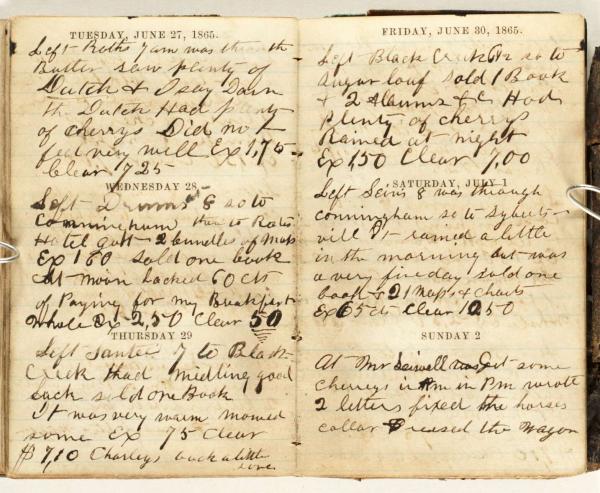 TUESDAY, JUNE 27, 1865.
Left Roths 7am was through
Butler saw plenty of
Dutch & I say Darn
the Dutch Had plenty
of cherrys Did not
feel very well Ex 1,75
Clear 7 25
WEDNESDAY 28
Left Drums 8 so to
Conningham then to
Hotel gott 2 bundles of Maps
Ex 1 80 sold one book
at noon lacked 60 cts
of Paying for my Breakfast
Whole Ex 2,50 Clear 50
THURSDAY 29
Left Santee 7 to Black
Creek had midling good
luck sold one Book
It was very warm
some Ex 75 Clear
$ 7,10 Charleys back a little
sore
FRIDAY, JUNE 30, 1865.
Left Black Creek 6½ so to
Sugar loaf Sold 1 Book
& 2 Albums & C Had
Plenty of cherrys
Rained at night
Ex 1,50 Clear 7,00
SATURDAY, JULY 1
Left 8 was through
conningham so to Syberts
vill It rained a little
in the morning but was
a very fine day sold one
book & 21 Maps & charts
Ex 65 cts Clear 10 50
SUNDAY 2
At Mr some
cherreys in Am in Pm wrote
2 letters fixed the horses
collar greased the Wagon